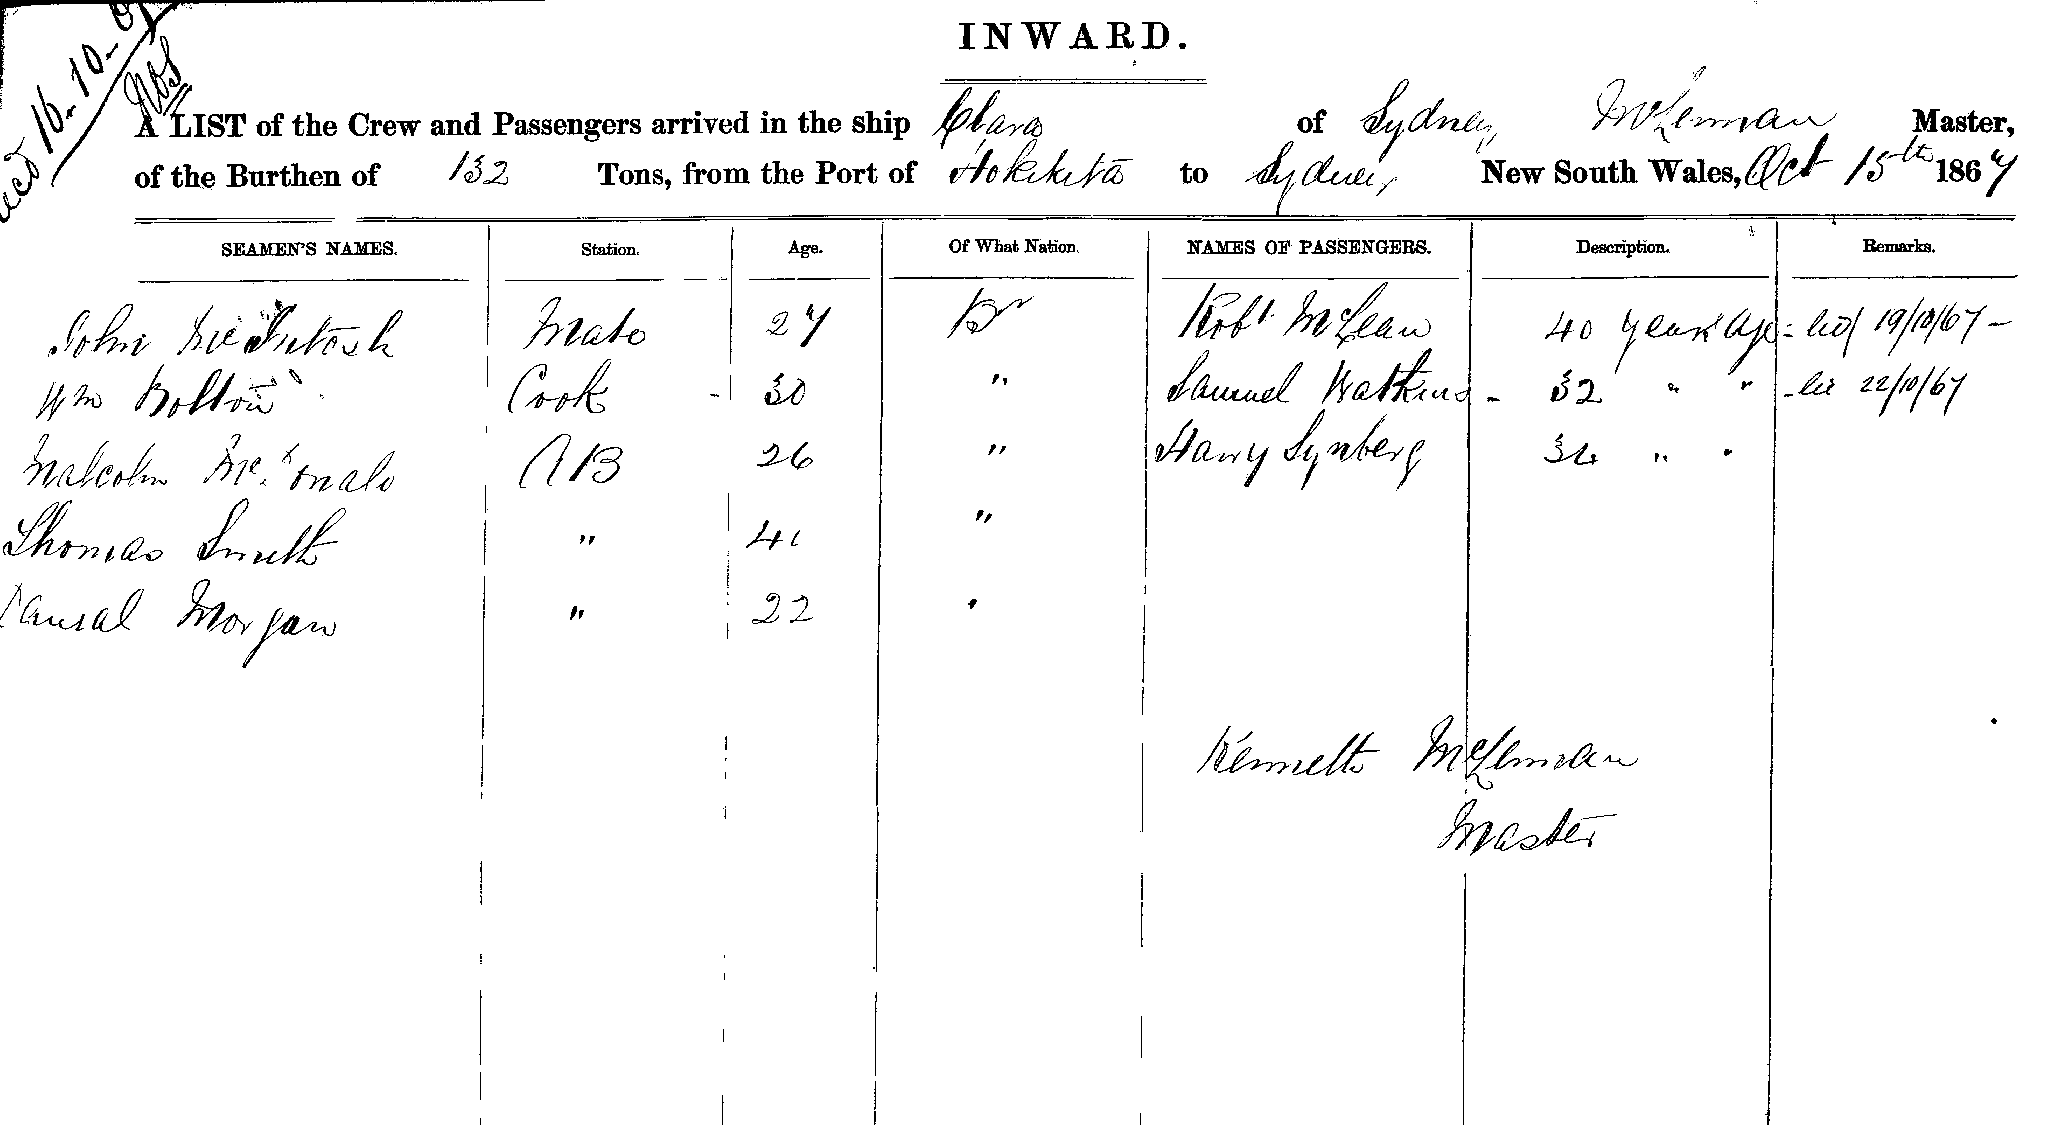 INWARD.
16-10-67
A LIST of the Crew and Passengers arrived in the ship Clara of Sydney, McLennan Master,
of the Burthen of 132 Tons, from the Port of Hokitika to Sydney, New South Wales, Oct 15th 1867
SEAMEN'S NAMES. Station. Age. Of What Nation. NAMES OF PASSENGERS. Description. Remarks.
John McIntosh Mate 27 Br Robt McLean 40 years age 19/10/67 -
Wm Bolton Cook - 30 " Samuel Watkins - 32 " " 22/10/67
Malcolm AB 26 " Harry Synberg 34 " "
Thomas Smith " 41 "
Morgan " 22 "
Kenneth McLennan
Master